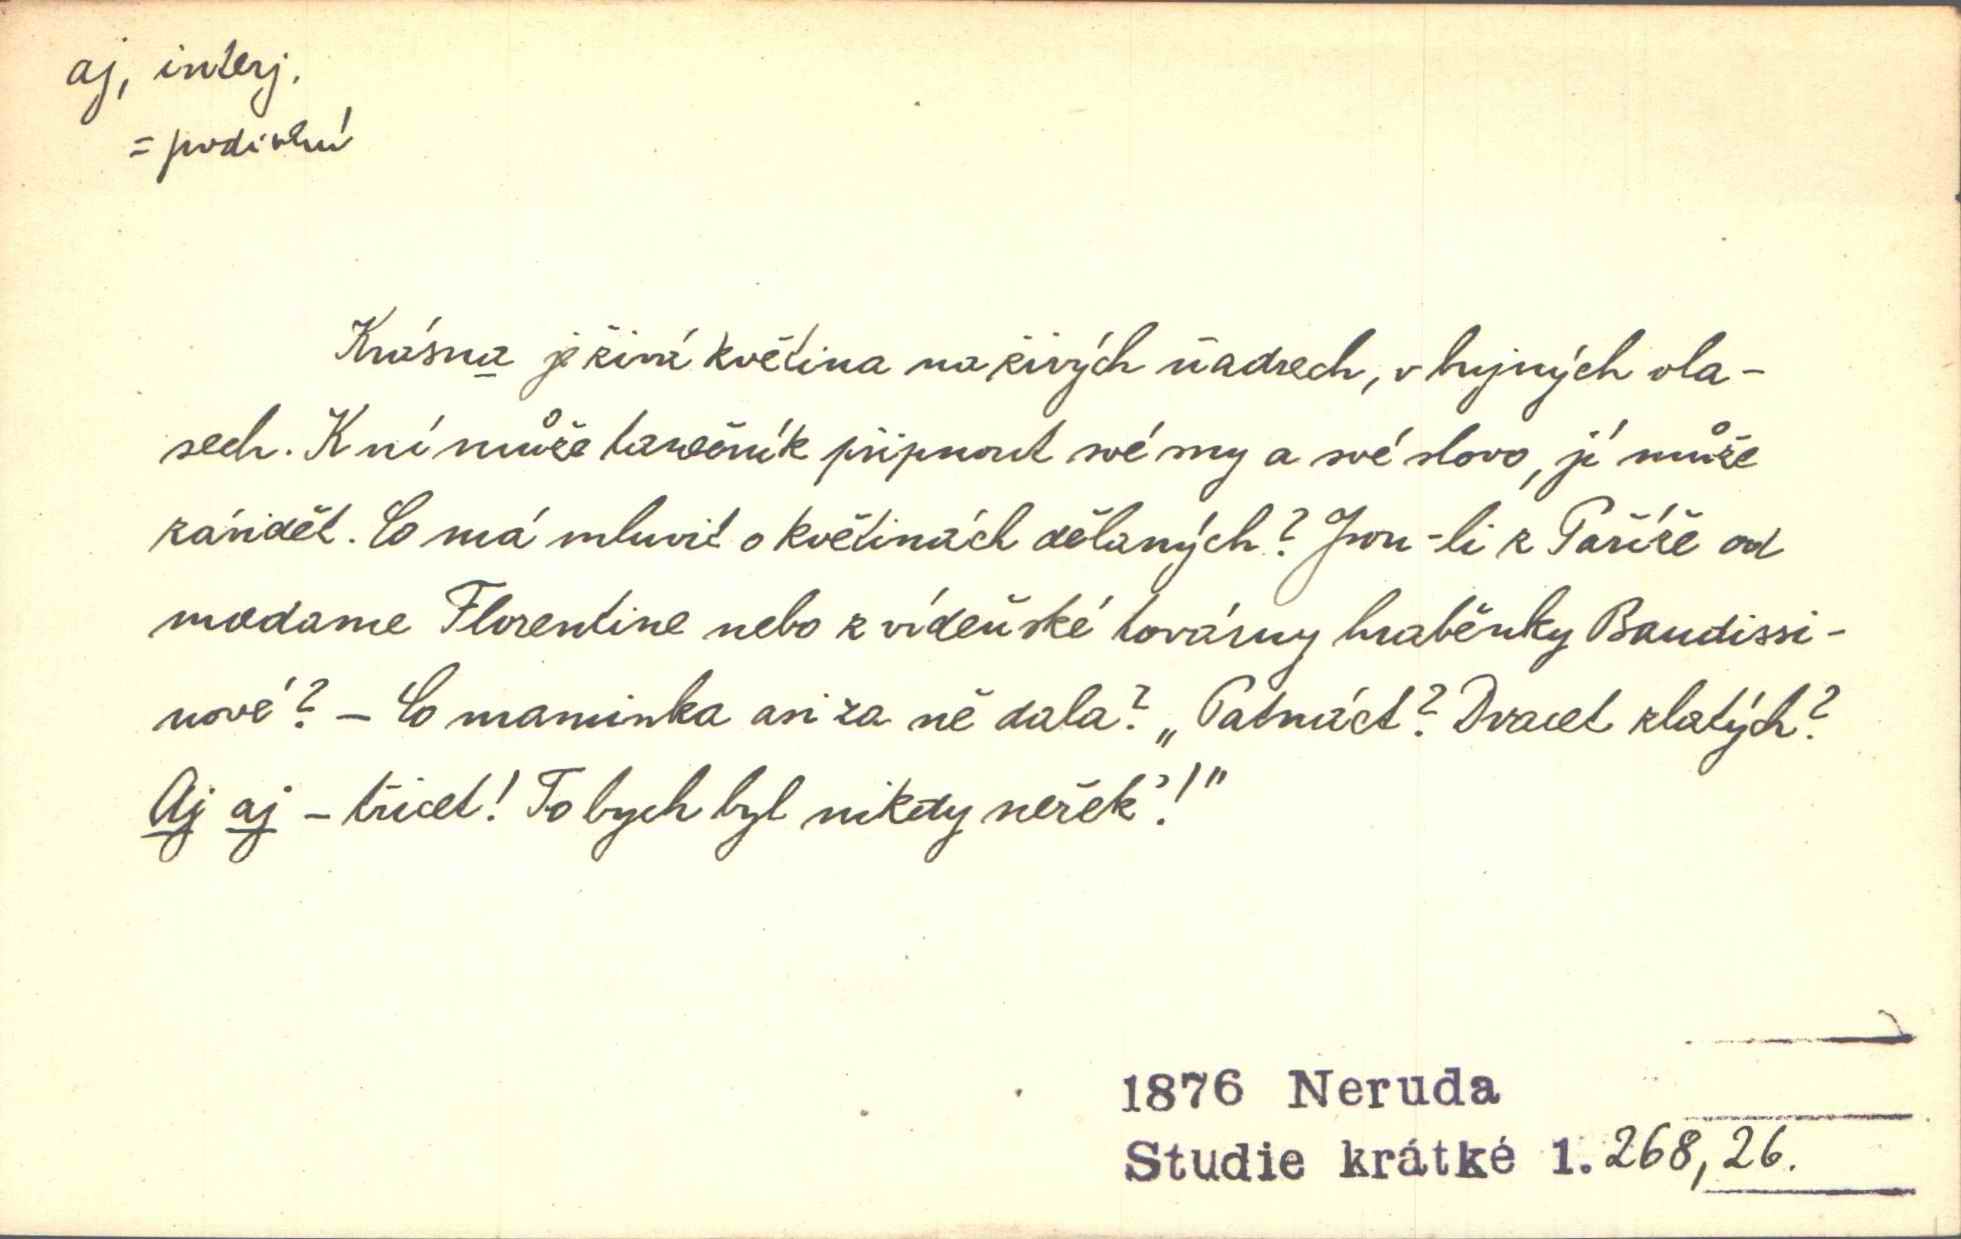 aj, interj.
= podivení
Krásna je živá květina na živých ňadrech, v bujných vla-
sech. K ní může tanečník připnout své sny a své slovo, jí může
závidět. Co má mluvit o květinách dělaných? Jsou-li z Paříže od
madame Florentine nebo z vídeňské továrny hraběnky Baudissi-
nové? – Co maminka asi za ně dala? „Patnáct? Dvacet zlatých?
Aj aj – třicet! To bych byl nikdy neřek'!"
1876 Neruda
Studie krátké 1. 268, 26.